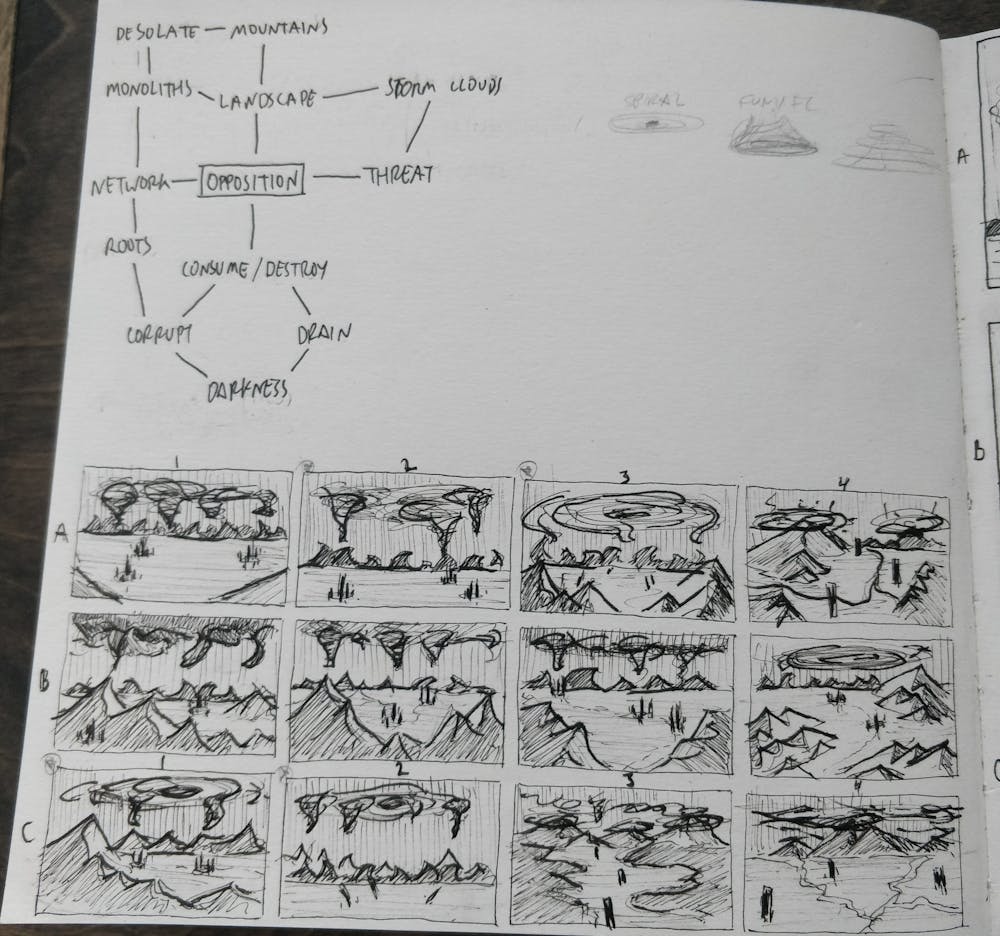 DESOLATE — MOUNTAINS
MONOLITHS LANDSCAPE STORM CLOUDS
SPIRAL FUNNEL
A
NETWORK OPPOSITION THREAT
ROOTS
CONSUME/DESTROY
CORRUPT DRAIN
DARKNESS
B
1 2 3 4
A
B
C
1 2 3 4
C